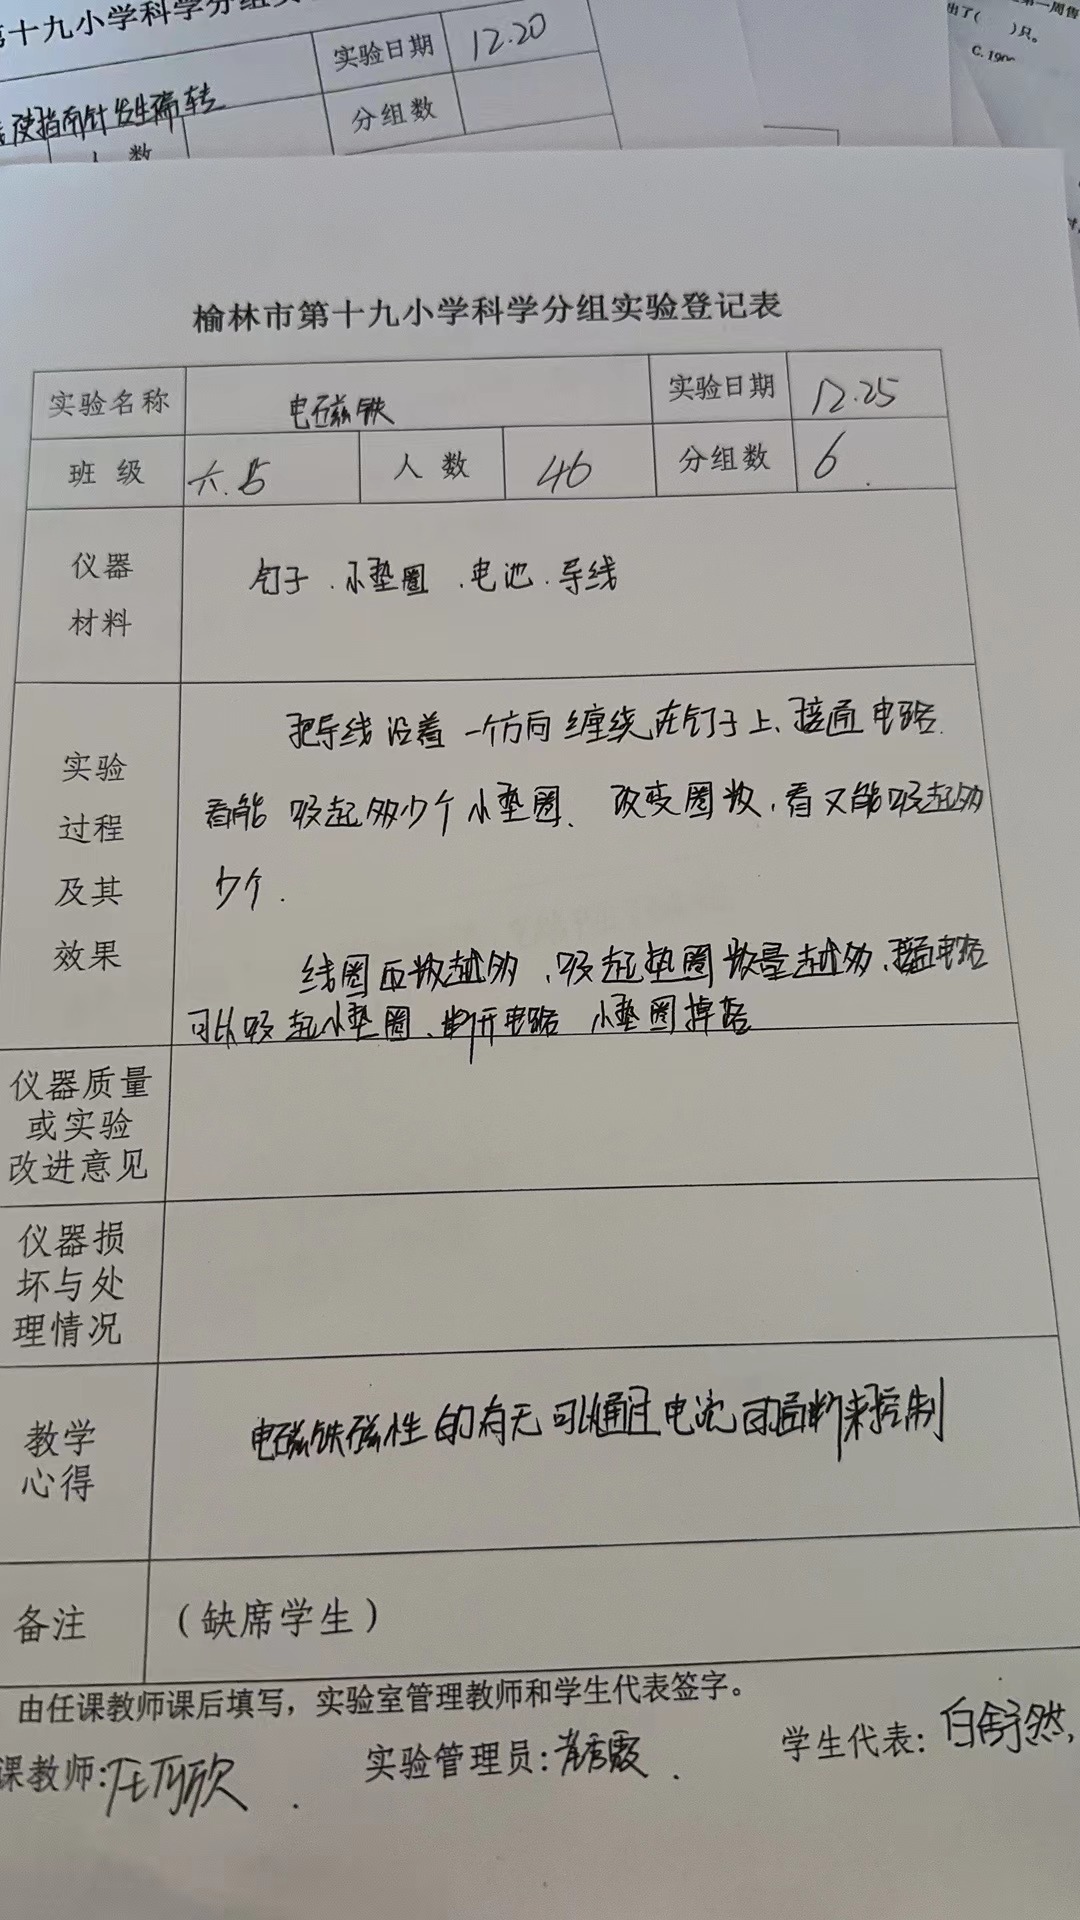 第十九小学科学分组实
实验日期 12.20
使指南针发生偏转
分组数
人 数
第一周售
出了(  )只。
C.190
榆林市第十九小学科学分组实验登记表
实验名称 电磁铁 实验日期 12.25
班 级 六.5 人 数 46 分组数 6
仪器
材料
钉子.小垫圈.电池.导线
实验
过程
及其
效果
把导线沿着一个方向缠绕在钉子上、接通电路.
看能吸起多少个小垫圈、改变圈数,看又能吸起多
少个.
线圈匝数越多,吸起垫圈数量越多,接通电路
可以吸起小垫圈、断开电路 小垫圈掉落
仪器质量
或实验
改进意见
仪器损
坏与处
理情况
教学
心得
电磁铁磁性的有无可以通过电流的通断来控制
备注 (缺席学生)
由任课教师课后填写，实验室管理教师和学生代表签字。
课教师: 实验管理员: 学生代表:白舒然